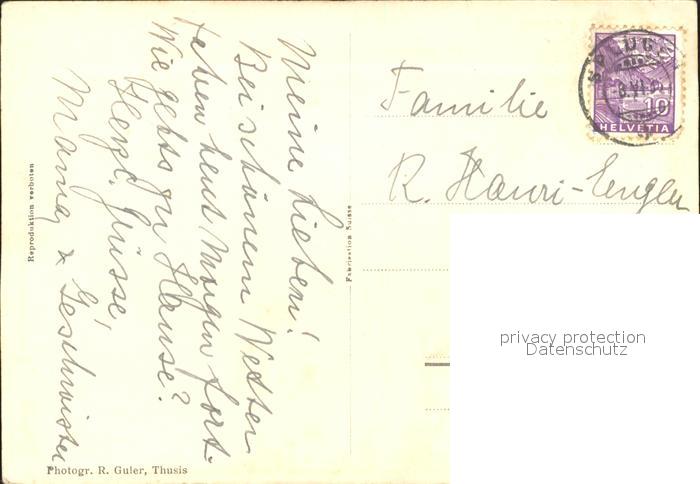 Meine Lieben!
Bei schönem Wetter
heut Morgen fort.
Wie gehts zu Hause?
Herzl. Grüsse,
Mama & Geschwister
Familie
R. Hauri-Engler
SPLÜGEN
8.VI.
10
HELVETIA
Reproduktion verboten
Fabrication Suisse
Photogr. R. Guler, Thusis
privacy protection
Datenschutz